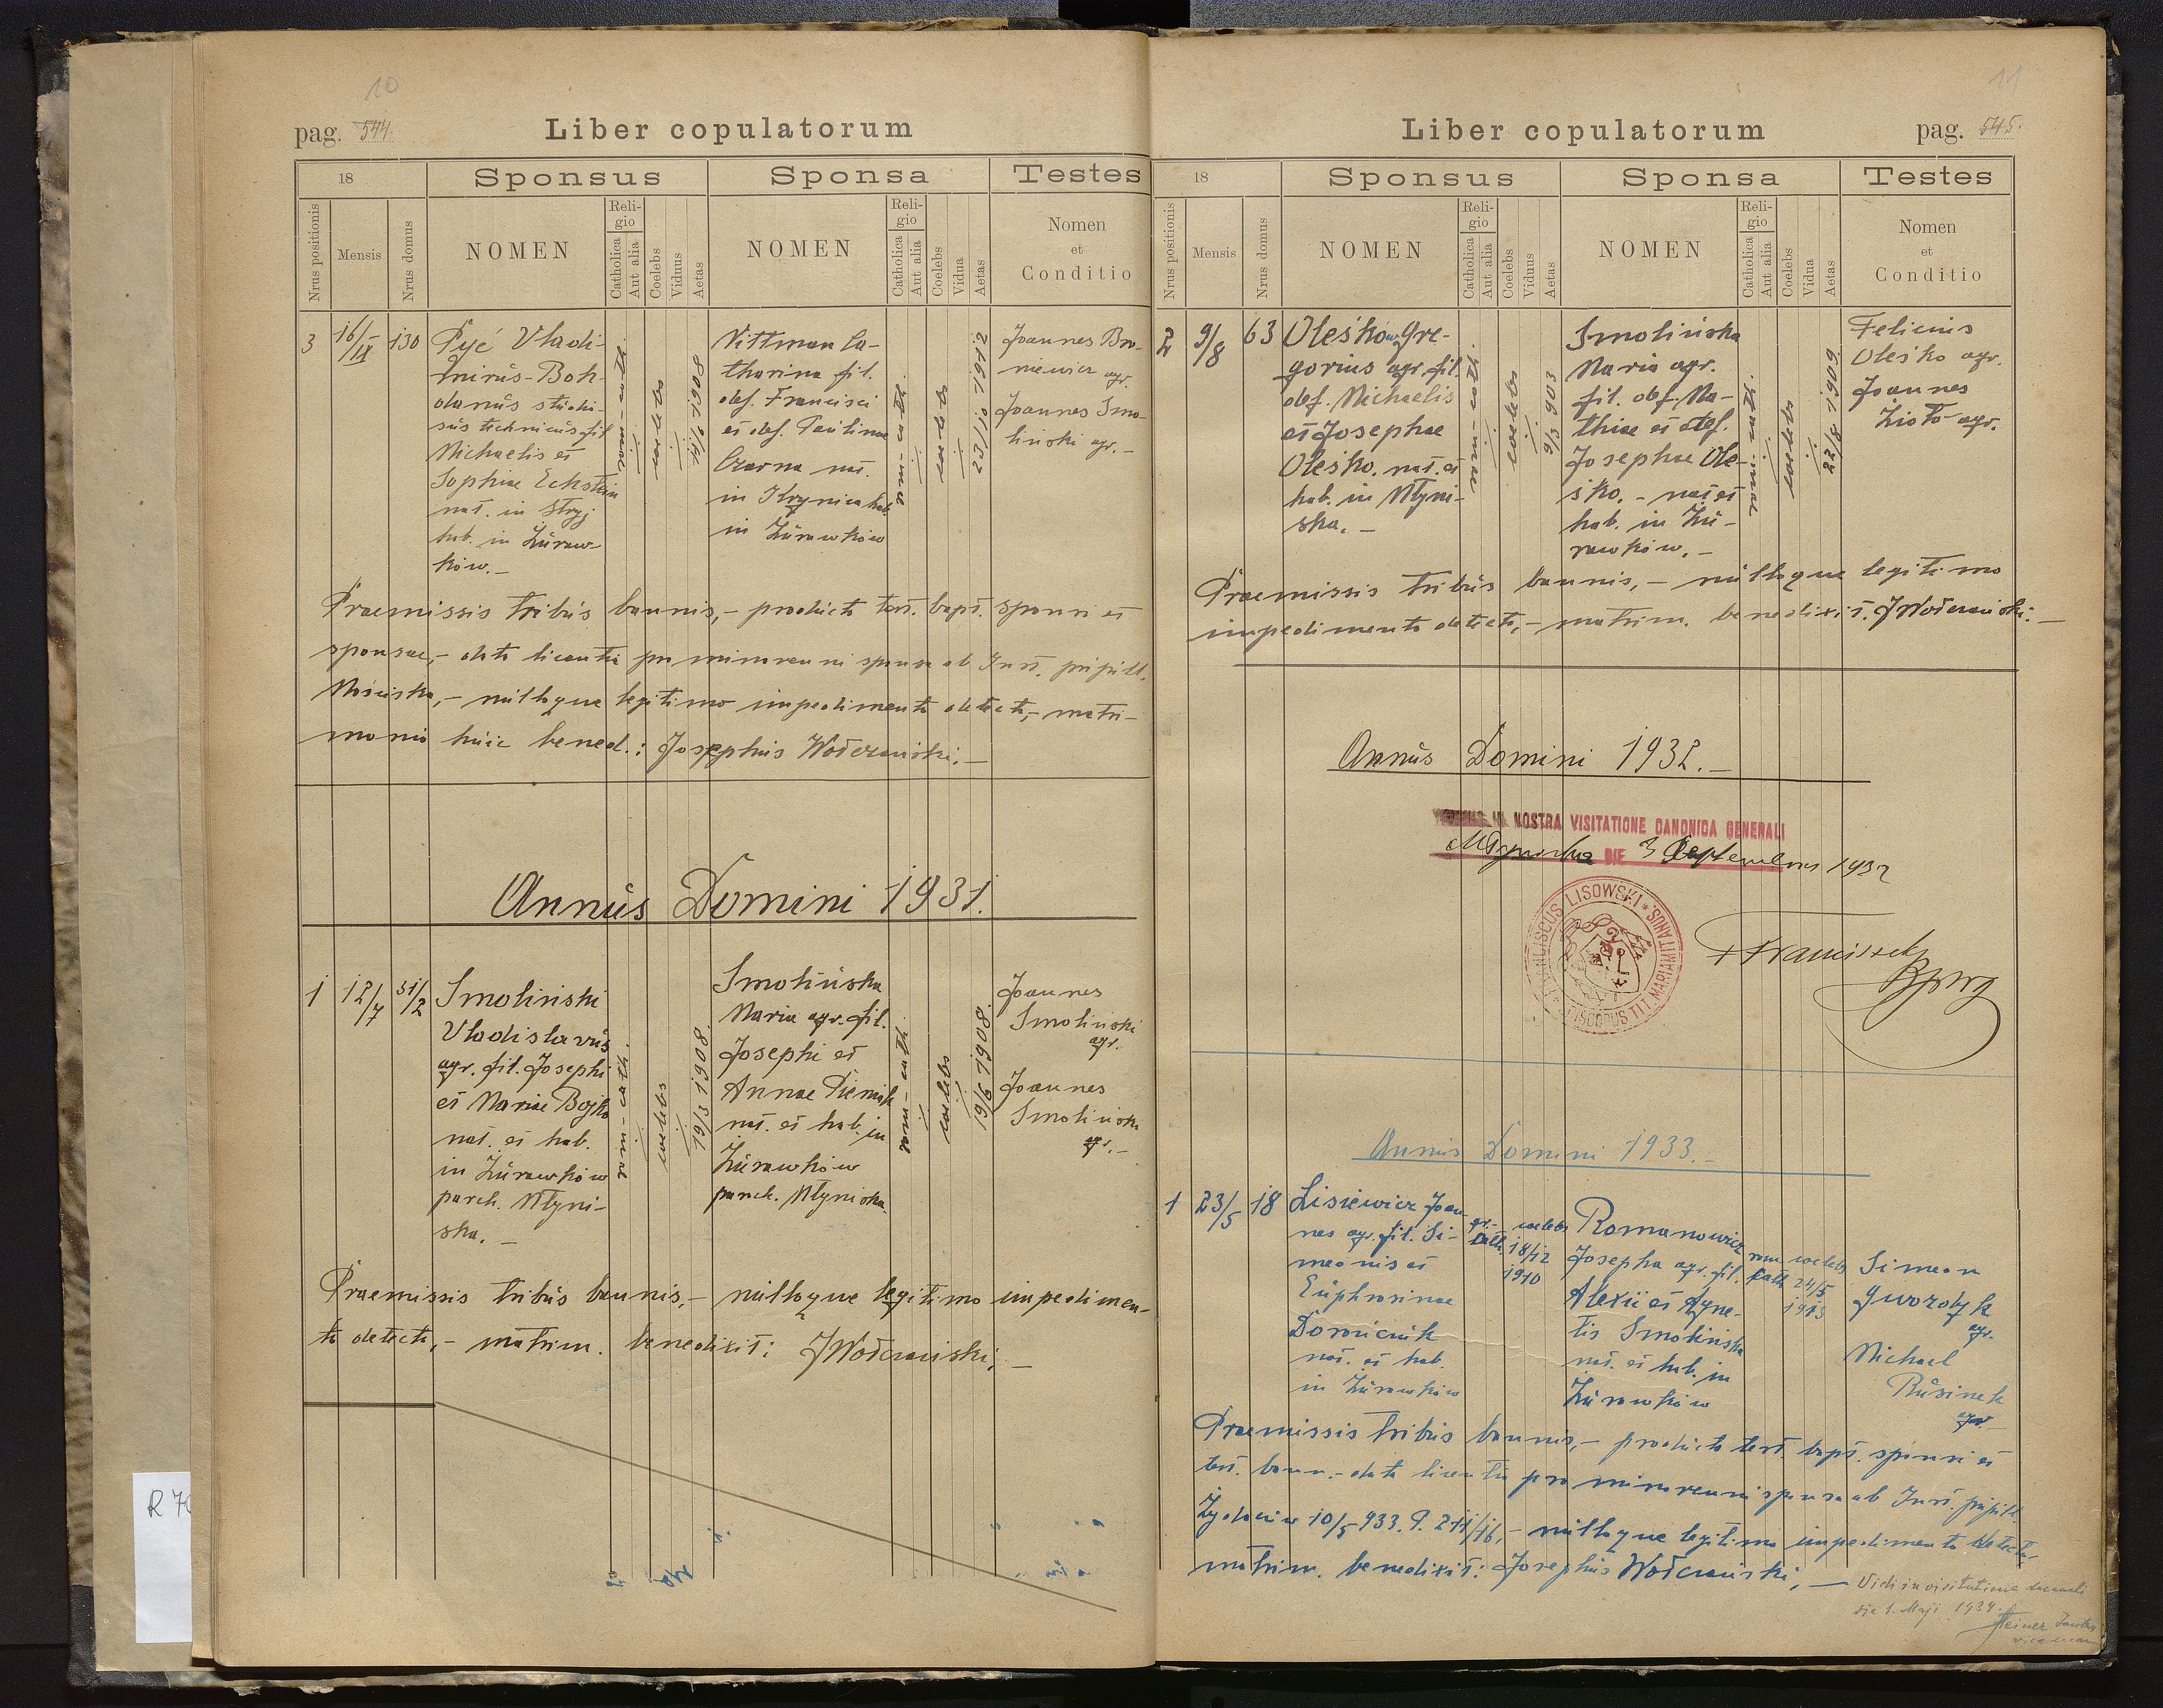 10
pag. 544.
Liber copulatorum
18
Sponsus
Sponsa
Testes
Nrus positionis
Mensis
Nrus domus
NOMEN
Religio
Catholica
Aut alia
Coelebs
Viduus
Aetas
NOMEN
Religio
Catholica
Aut alia
Coelebs
Vidua
Aetas
Nomen
et
Conditio
3
16/II
130
Pyć Vladi-
mirus-Boh-
danus studio-
sus technicus fil.
Michaelis et
Sophiae Eckstein
nat. in Stryj
hab. in Żuraw-
ków.-
coelebs
1908
Wittman Ca-
tharina fil.
def. Francisci
et def. Paulinae
Czarna nat.
in Krynica hab.
in Żurawków
coelebs
23/10 1912
Joannes Bro-
niewicz agr.
Joannes Smo-
liński agr.-
Praemissis tribus bannis,- producto test. bapt. sponsi et
sponsae,- data licentia pro minorenni sponsa ab Inst. pupill.
Mościska,- nulloque legitimo impedimento detecto,- matri-
monio huic bened.: Josephus Wołczański.-
Annus Domini 1931.
1
12/7
31/2
Smoliński
Vladislavus
agr. fil. Josephi
et Mariae Bojko
nat. et hab.
in Żurawków
paroch. Młyni-
ska.-
rom-cath.
coelebs
19/3 1908.
Smolińska
Maria agr. fil.
Josephi et
Annae Pieniek
nat. et hab. in
Żurawków
paroch. Młyniska.
rom-cath
coelebs
19/6 1908.
Joannes
Smoliński
agr.
Joannes
Smoliński
agr.-
Praemissis tribus bannis,- nulloque legitimo impedimen-
to detecto,- matrim. benedixit: JWołczański.-
R 70
11
Liber copulatorum
pag. 545.
18
Sponsus
Sponsa
Testes
Nrus positionis
Mensis
Nrus domus
NOMEN
Religio
Catholica
Aut alia
Coelebs
Viduus
Aetas
NOMEN
Religio
Catholica
Aut alia
Coelebs
Vidua
Aetas
Nomen
et
Conditio
2
9/8
63
Oleśków Gre-
gorius agr. fil.
def. Michaelis
et Josephae
Oleśko. nat. et
hab. in Młyni-
ska.-
coelebs
9/3 903
Smolińska
Maria agr.
fil. def. Ma-
thiae et def.
Josephae Ole-
śko.- nat et
hab. in Żu-
rawków.-
coelebs
22/8 1909
Felicius
Oleśko agr.
Joannes
Zioło agr.
Praemissis tribus bannis,- nulloque legitimo
impedimento detecto,- matrim. benedixit. JWołczański.-
Annus Domini 1932.-
NOSTRA VISITATIONE CANONICA GENERALI
Młyniska DIE 3 Septembris 1932
FRANCISCUS LISOWSKI * EPISCOPUS TIT. MARIAMITANUS *
+ Franciszek
Bpsuf
Annus Domini 1933.-
1
23/5
18
Lisiewicz Joan-
nes agr. fil. Si-
meonis et
Euphrosinae
Dorniczuk
nat. et hab.
in Żurawków
gr.-cath.
coelebs
18/12
1910
Romanowicz
Josepha agr. fil.
Alexii et Agne-
tis Smolińska
nat. et hab. in
Żurawków
rom cath
coelebs
24/5
1913
Simeon
Gwozdyk
agr.
Michael
Rusinek
agr
Praemissis tribus bannis,- producto test. bapt. sponsi et
test. bann.- data licentia pro minorenni sponsa ab Inst. pupill
Żydaczów 10/5 933. P. 211/16,- nulloque legitimo impedimento detecto,
matrim. benedixit: Josephus Wołczański,-
Vidi in visitatione decanali
die 1. Maji 1934.